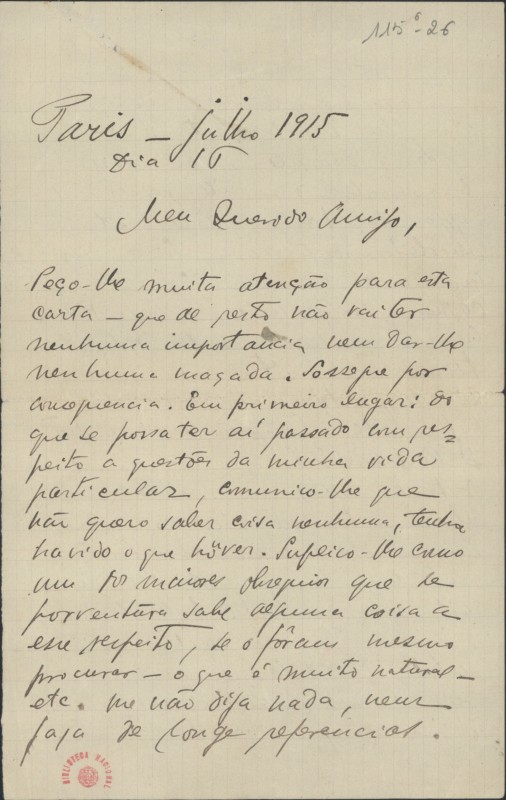 115⁶-26
Paris – Julho 1915
Dia 16
Meu Querido Amigo,
Peço-lhe muita atenção para esta
carta – que de resto não vai ter
nenhuma importancia nem dar-lhe
nenhuma maçada. Sossegue por
consequencia. Em primeiro lugar: do
que se possa ter aí passado com res-
peito a questões da minha vida
particular, comunico-lhe que
não quero saber coisa nenhuma, tenha
havido o que houver. Suplico-lhe como
um dos maiores obsequios que se
porventura sabe alguma coisa a
esse respeito, se o fôram mesmo
procurar – o que é muito natural –
etc. me não diga nada, nem
faça de longe referencias.
BIBLIOTECA NACIONAL